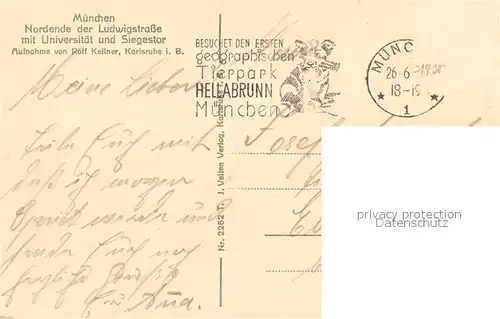 München
Nordende der Ludwigstraße
mit Universität und Siegestor
Aufnahme von Rolf Kellner, Karlsruhe i. B.
BESUCHET DEN ERSTEN
geographischen
Tierpark
HELLABRUNN
München
MÜNC
26-6
18-19
* 1 *
Meine Lieben
Teile Euch mit
daß ich morgen
werde und
sende Euch noch
herzliche
Nr. 2252 T. J. Velten Verlag, Karlsruhe
Josef
privacy protection
Datenschutz